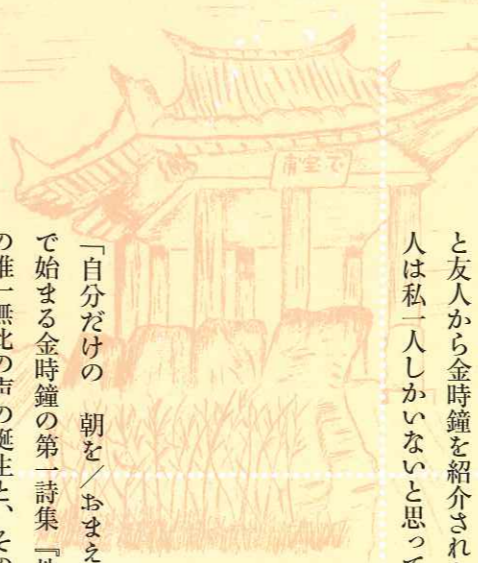 と友人から金時鐘を紹介され
人は私一人しかいないと思って
「自分だけの　朝を／おまえ
で始まる金時鐘の第一詩集『地
の唯一無比の声の誕生と、その